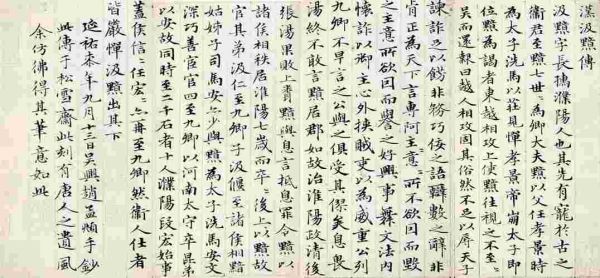 漢汲黯傳
汲黯字長孺濮陽人也其先有寵於古之
衛君至黯七世〻為卿大夫黯以父任孝景時
為太子洗馬以莊見憚孝景帝崩太子即
位黯為謁者東越相攻上使黯往視之不至〻
吳而還報曰越人相攻固其俗然不足以辱天子
諫詐足以飾非務巧佞之語辯數之辭非
肯正為天下言專阿主意〻所不欲因而毀
之主意所欲因而譽之好興事舞文法內
懷詐以御主心外挾賊吏以為威重公列
九卿不早言之公與之俱受其僇矣息畏
湯終不敢言黯居郡如故治淮陽政清後
張湯果敗上聞黯與息言抵息罪令黯以
諸侯相秩居淮陽七歲而卒〻後上以黯故
官其弟汲仁至九卿子汲偃至諸侯相黯
姑姊子司馬安亦少與黯為太子洗馬安文
深巧善宦官四至九卿以河南太守卒昆弟
以安故同時至二千石者十人濮陽段宏始事
蓋侯信〻任宏〻亦再至九卿然衛人仕者
皆嚴憚汲黯出其下
延祐柒年九月十三日吳興趙孟頫手鈔
此傳于松雪齋此刻有唐人之遺風
余仿佛得其筆意如此